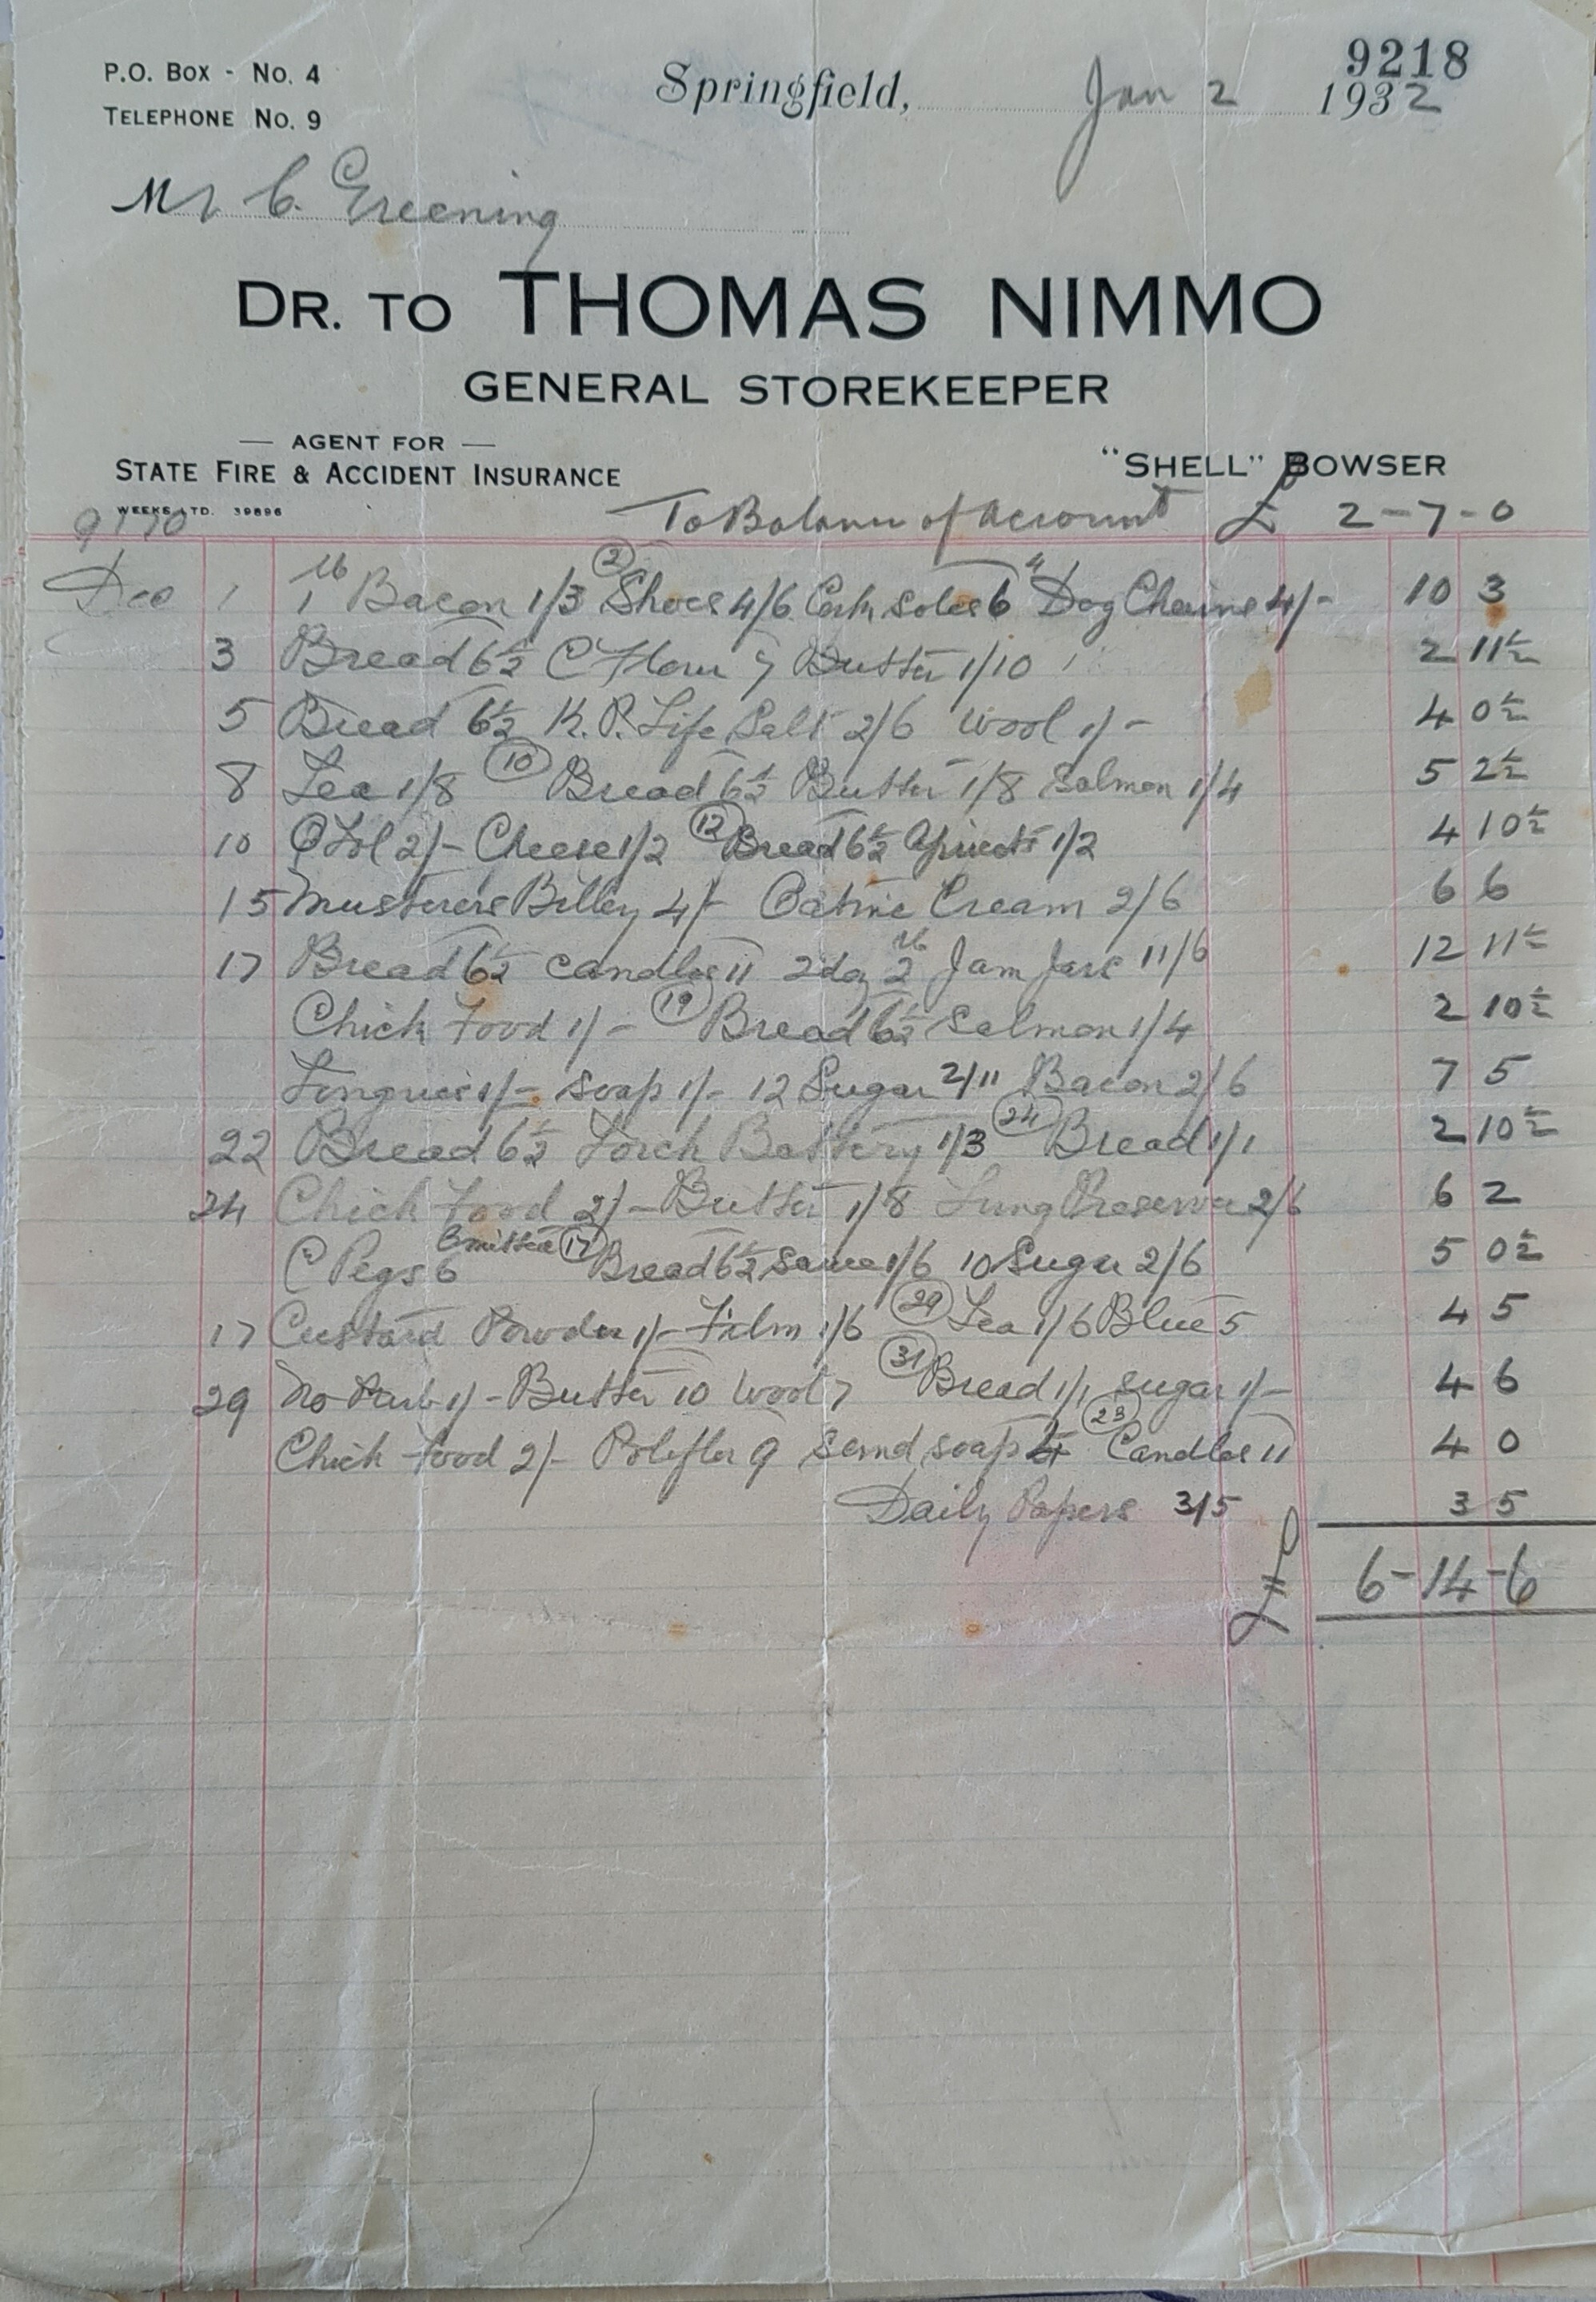 P.O. Box - No. 4
9218
Telephone No. 9
Springfield, Jan 2 1932
Mr C. Greening
Dr. to THOMAS NIMMO
GENERAL STOREKEEPER
— AGENT FOR —
State Fire & Accident Insurance
"SHELL" BOWSER
WEEKS LTD. 39896
9170 To Balance of Account £ 2-7-0
Dec 1 1 lb Bacon 1/3 (2) Shoes 4/6 Cork soles 6 4 Dog Chains 4/- 10 3
3 Bread 6½ C Flour 7 Butter 1/10 2 11½
5 Bread 6½ K.P. Life Salt 2/6 Wool 1/- 4 0½
8 Tea 1/8 (10) Bread 6½ Butter 1/8 Salmon 1/4 5 2½
10 2/- Cheese 1/2 (12) Bread 6½ Apricots 1/2 4 10½
15 Musterers Billey 4/- Oatine Cream 2/6 6 6
17 Bread 6½ Candles 11 2 doz 2 lb Jam Jars 11/6 12 11½
Chick Food 1/- (19) Bread 6½ Salmon 1/4 2 10½
Tongues 1/- Soap 1/- 12 Sugar 2/11 Bacon 2/6 7 5
22 Bread 6½ Torch Battery 1/3 (24) Bread 1/1 2 10½
24 Chick Food 2/- Butter 1/8 Lung Preserver 2/6 6 2
C Pegs 6 Omitted (17) Bread 6½ Sauce 1/6 10 Sugar 2/6 5 0½
17 Custard Powder 1/- Film 1/6 (29) Tea 1/6 Blue 5 4 5
29 No Rub 1/- Butter 10 Wool 7 (31) Bread 1/1 Sugar 1/- 4 6
Chick Food 2/- 9 Sand soap 4 (23) Candles 11 4 0
Daily Papers 3/5 3 5
£ 6-14-6